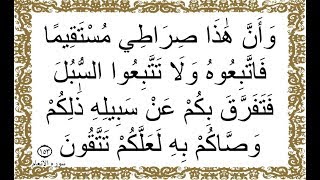 وَأَنَّ هَٰذَا صِرَاطِي مُسْتَقِيمًا
فَاتَّبِعُوهُ وَلَا تَتَّبِعُوا السُّبُلَ
فَتَفَرَّقَ بِكُمْ عَنْ سَبِيلِهِ ذَٰلِكُمْ
وَصَّاكُمْ بِهِ لَعَلَّكُمْ تَتَّقُونَ ١٥٣
سورة الأنعام